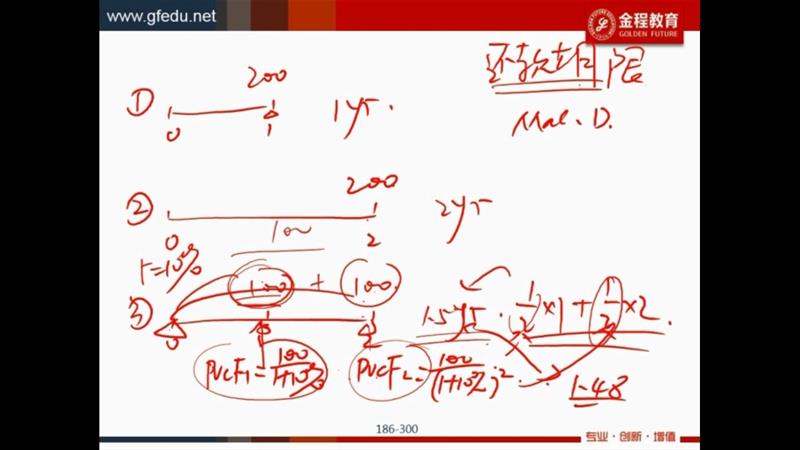 www.gfedu.net
金程教育
GOLDEN FUTURE
还款期限
Mac. D.
① 200
0 1 1yr.
② 200
0 2 2yr
100
r=10%
③ 100 + 100
1.5yr. 1/2×1 + 1/2×2.
0 1 2
PVCF₁ = 100/(1+10%) PVCF₂ = 100/(1+10%)²
1.48
186-300
专业·创新·增值